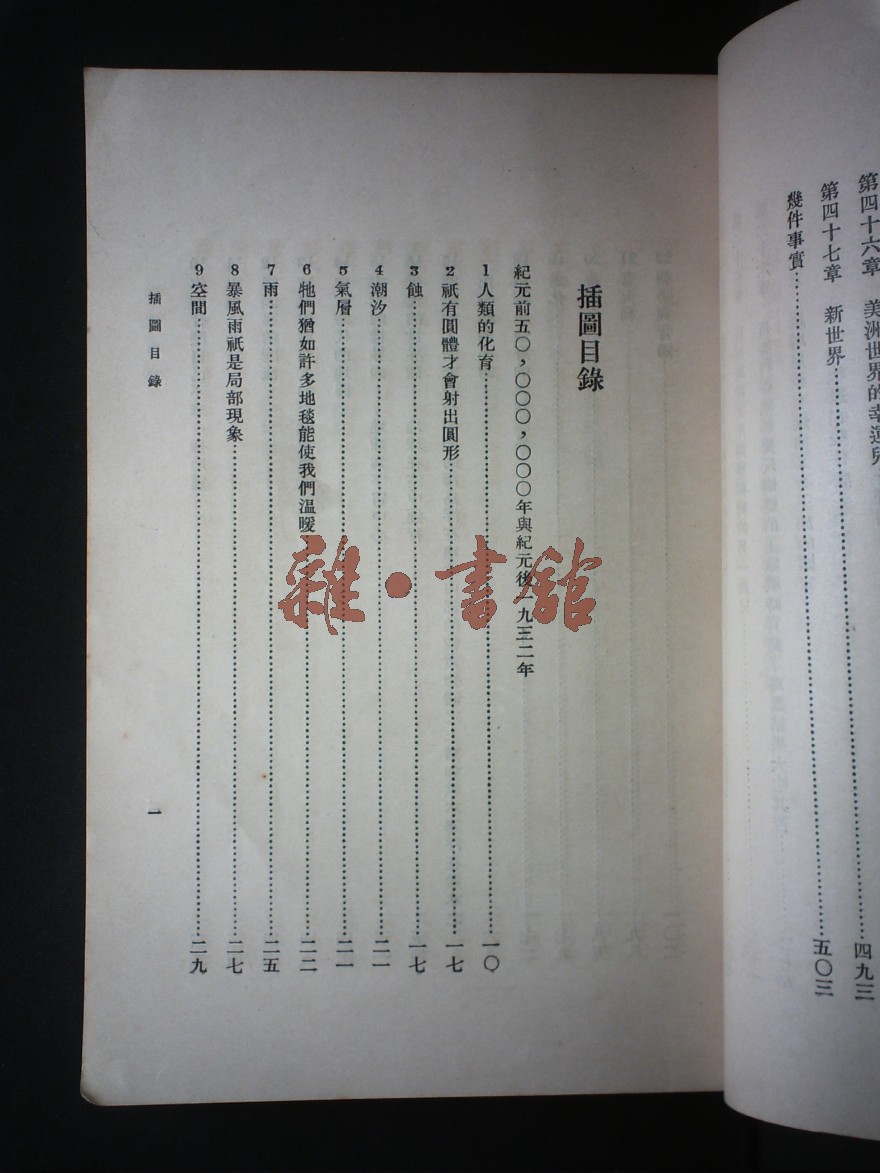 第四十六章 美洲世界的幸運兒
第四十七章 新世界……………………四九三
幾件事實……………………五〇三
插圖目錄
紀元前五〇,〇〇〇,〇〇〇年與紀元後一九三二年
1 人類的化育……………………一〇
2 祇有圓體才會射出圓形……………………一七
3 蝕……………………一七
4 潮汐……………………二一
5 氣層……………………二一
6 牠們猶如許多地毯能使我們溫暖……………………二二
7 雨……………………二五
8 暴風雨祇是局部現象……………………二七
9 空間……………………二九
插圖目錄
一
雜·書館